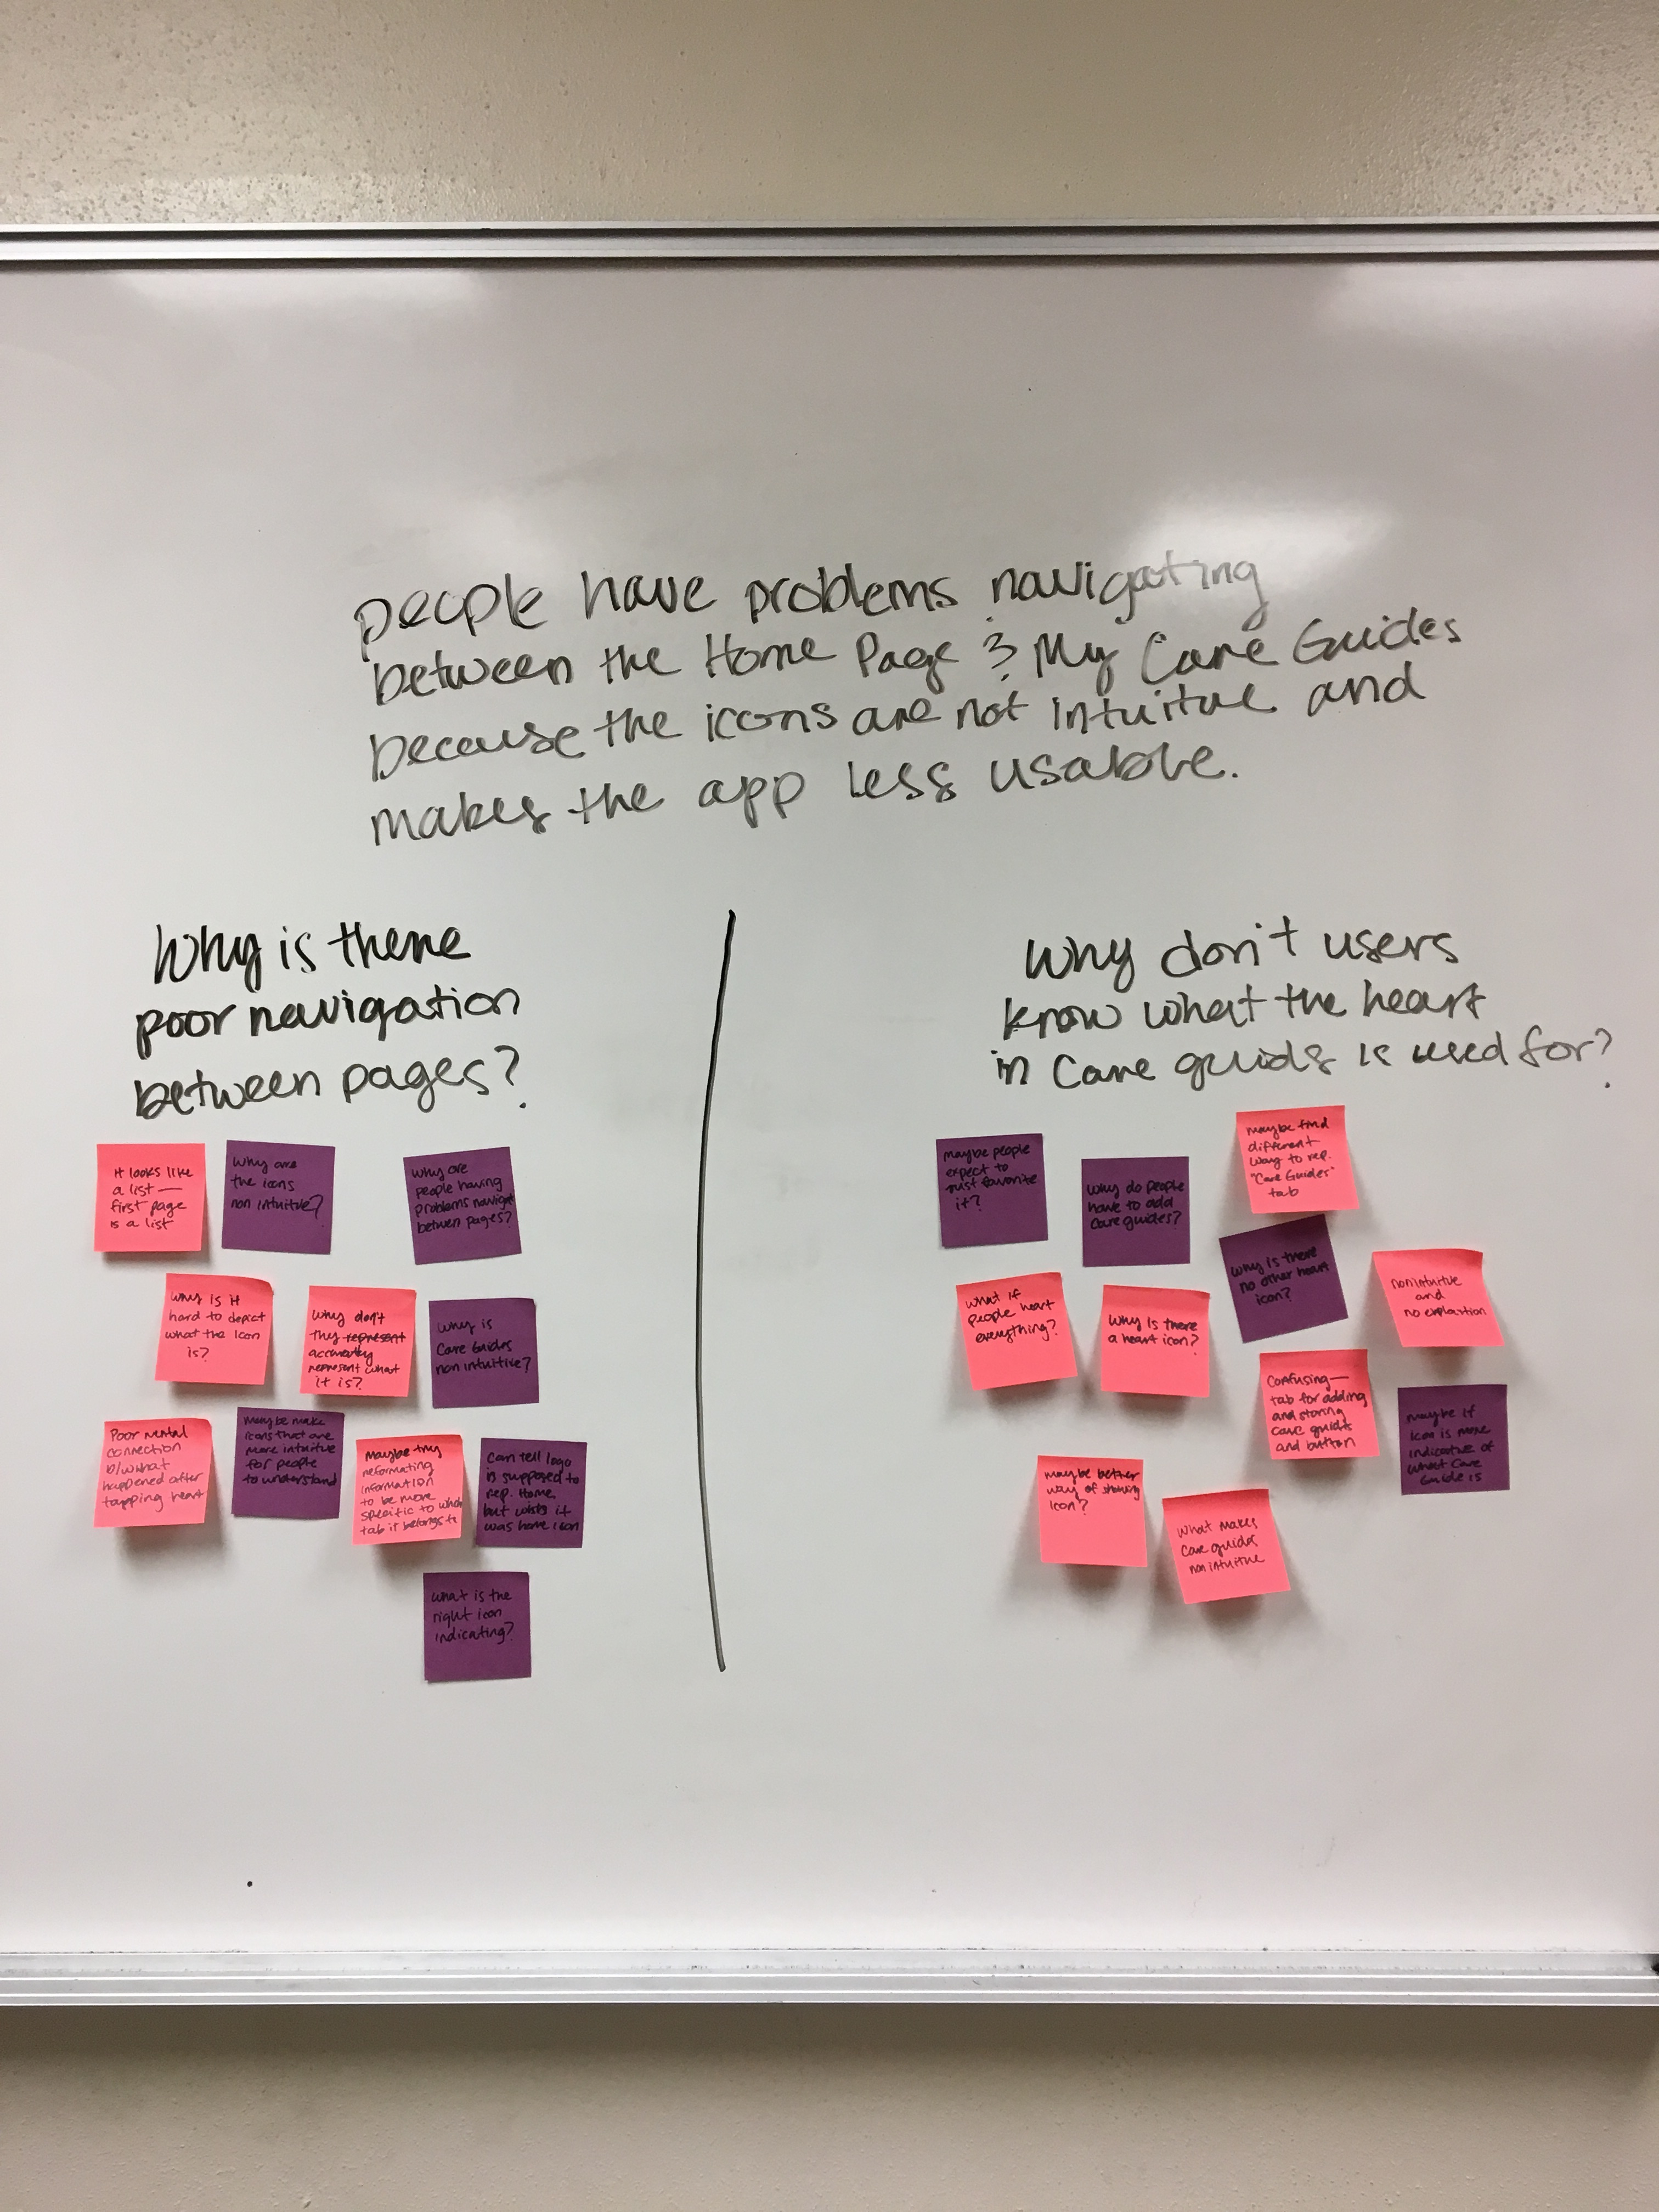 people have problems navigating
between the Home Page & My Care Guides
because the icons are not intuitive and
makes the app less usable.
Why is there
poor navigation
between pages?
It looks like
a list —
first page
is a list
Why are
the icons
non intuitive?
Why are
people having
problems navigat
between pages?
Why is it
hard to depict
what the icon
is?
Why don't
they represent
accurately
represent what
it is?
Why is
Care Guides
non intuitive?
Poor mental
connection
b/w what
happened after
tapping heart
Maybe make
icons that are
more intuitive
for people
to understand
Maybe try
reformating
information
to be more
specific to which
tab it belongs to
Can tell logo
is supposed to
rep. Home,
but wish it
was home icon
What is the
right icon
indicating?
Why don't users
know what the heart
in Care guids is used for?
Maybe people
expect to
just favorite
it?
Why do people
have to add
Care guides?
Maybe find
different
way to rep.
"Care Guides"
tab
Why is there
no other heart
icon?
What if
people heart
everything?
Why is there
a heart icon?
nonintuitive
and
no explantion
Confusing —
tab for adding
and storing
care guides
and button
Maybe if
icon is more
indicative of
what Care
Guide is
Maybe better
way of showing
icon?
What makes
Care guides
non intuitive